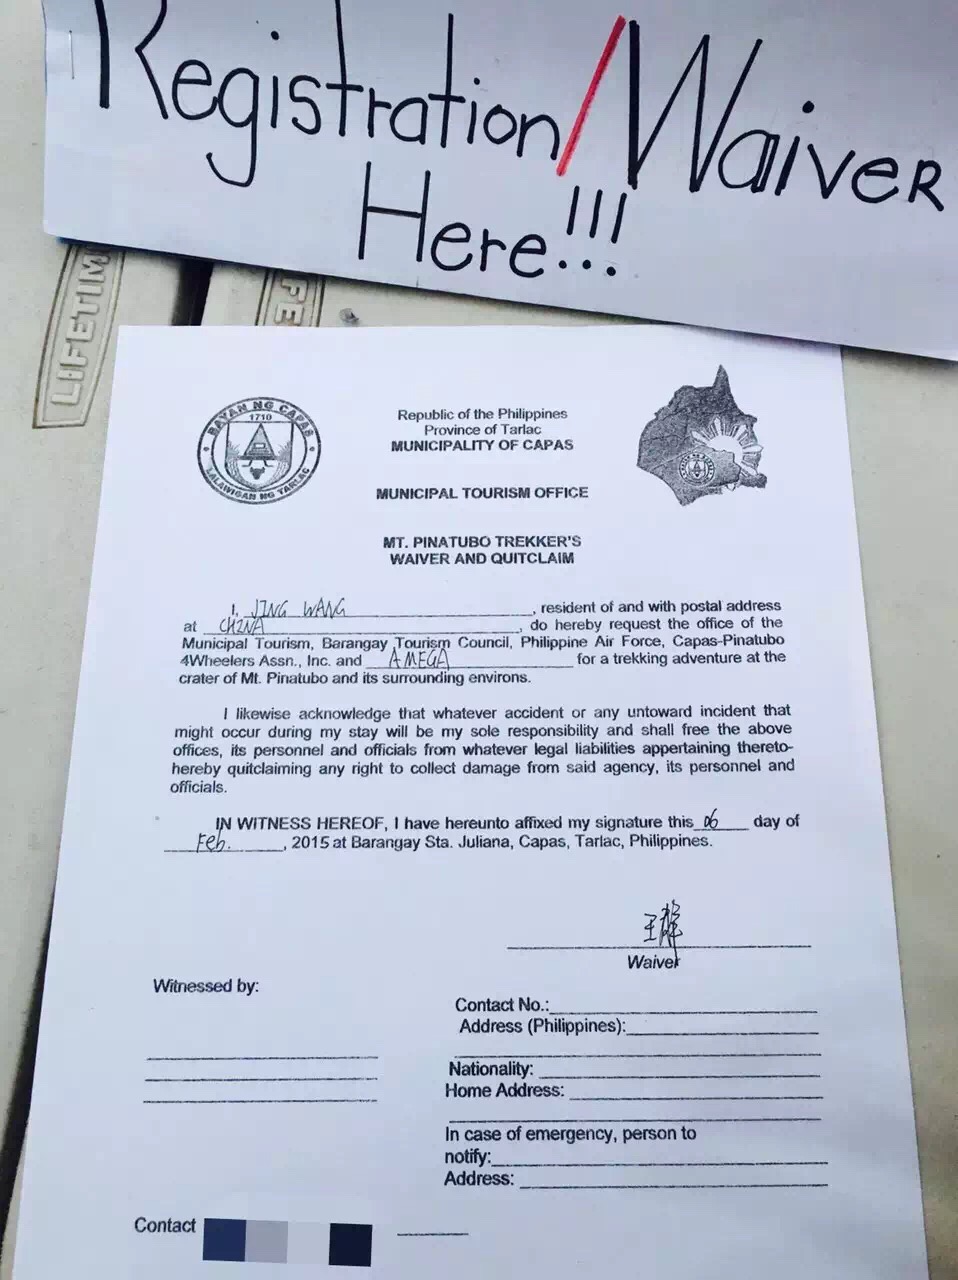 Registration/Waiver
Here!!!
LIFETIM
FE
BAYAN NG CAPAS
1710
LALAWIGAN NG TARLAC
Republic of the Philippines
Province of Tarlac
MUNICIPALITY OF CAPAS
MUNICIPAL TOURISM OFFICE
MT. PINATUBO TREKKER'S
WAIVER AND QUITCLAIM
I, JING WANG, resident of and with postal address
at CHINA, do hereby request the office of the
Municipal Tourism, Barangay Tourism Council, Philippine Air Force, Capas-Pinatubo
4Wheelers Assn., Inc. and AMEGA for a trekking adventure at the
crater of Mt. Pinatubo and its surrounding environs.
I likewise acknowledge that whatever accident or any untoward incident that
might occur during my stay will be my sole responsibility and shall free the above
offices, its personnel and officials from whatever legal liabilities appertaining thereto-
hereby quitclaiming any right to collect damage from said agency, its personnel and
officials.
IN WITNESS HEREOF, I have hereunto affixed my signature this 06 day of
Feb., 2015 at Barangay Sta. Juliana, Capas, Tarlac, Philippines.
Waiver
Witnessed by:
Contact No.:
Address (Philippines):
Nationality:
Home Address:
In case of emergency, person to
notify:
Address:
Contact